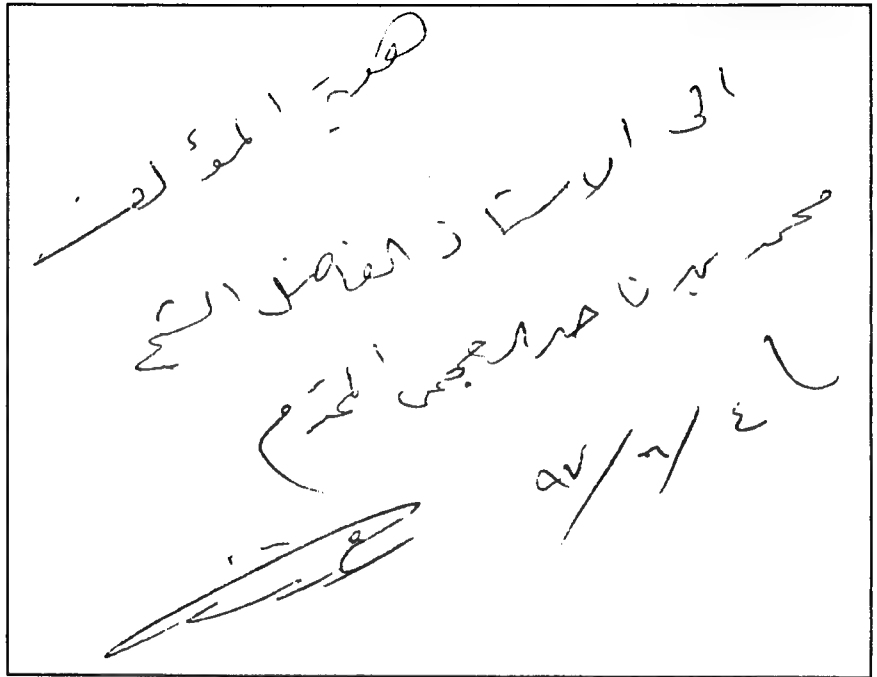 هدية المؤلف
الى الاستاذ الفاضل الشيخ
محمد بن ناصر العجمي المحترم
٤/ /٩٧